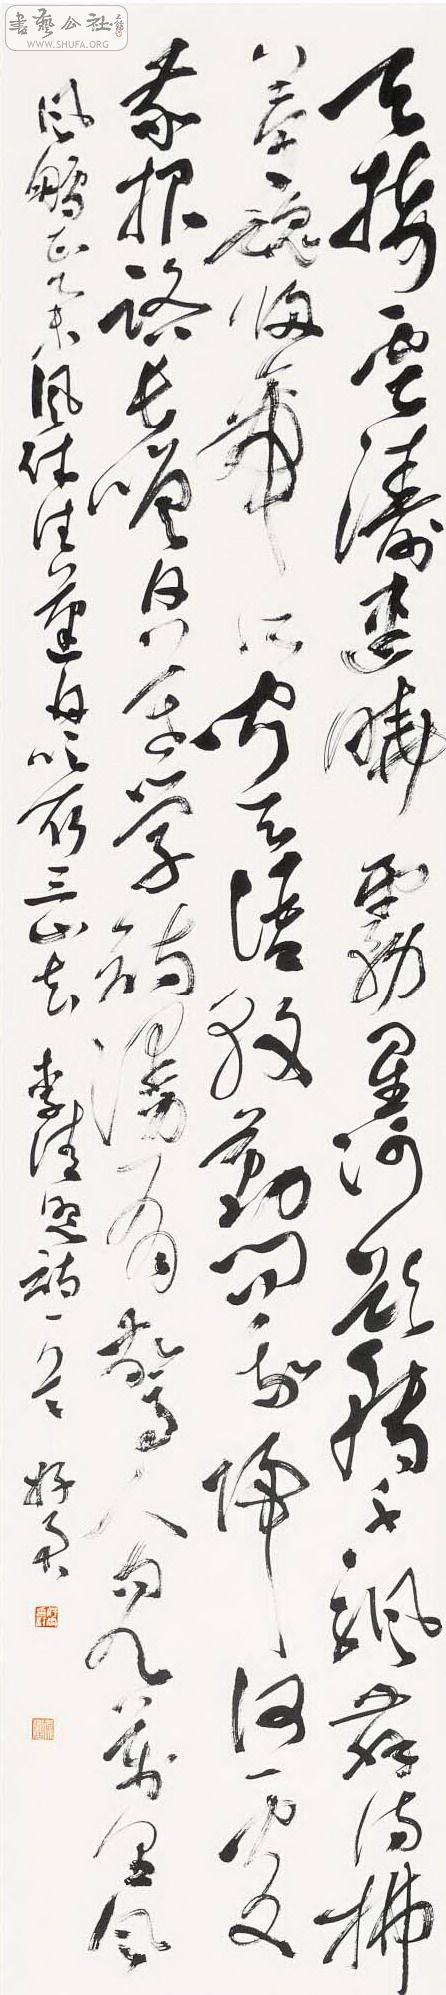 書藝公社
WWW.SHUFA.ORG
天接雲濤連曉霧星河欲轉千帆舞彷彿
夢魂歸帝所聞天語殷勤問我歸何處
我報路長嗟日暮學詩漫有驚人句九萬里風
風鵬正舉風休住蓬舟吹取三山去 李清照詞一首